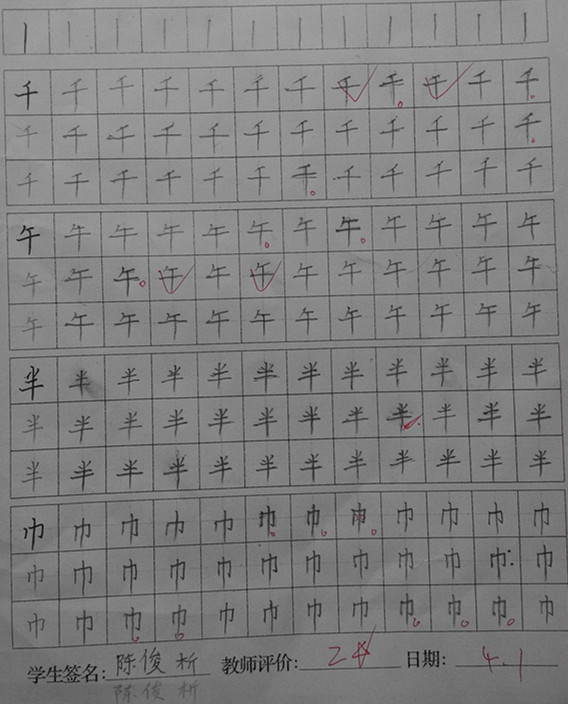 丨 丨 丨 丨 丨 丨 丨 丨 丨 丨 丨 丨
千 千 千 千 千 千 千 千 千 千 千 千
千 千 千 千 千 千 千 千 千 千 千 千
千 千 千 千 千 千 千 千 千 千 千 千
午 午 午 午 午 午 午 午 午 午 午 午
午 午 午 午 午 午 午 午 午 午 午 午
午 午 午 午 午 午 午 午 午 午 午 午
半 半 半 半 半 半 半 半 半 半 半 半
半 半 半 半 半 半 半 半 半 半 半 半
半 半 半 半 半 半 半 半 半 半 半 半
巾 巾 巾 巾 巾 巾 巾 巾 巾 巾 巾 巾
巾 巾 巾 巾 巾 巾 巾 巾 巾 巾 巾 巾
巾 巾 巾 巾 巾 巾 巾 巾 巾 巾 巾 巾
学生签名: 陈俊析 教师评价: 日期: 4.1
陈俊析